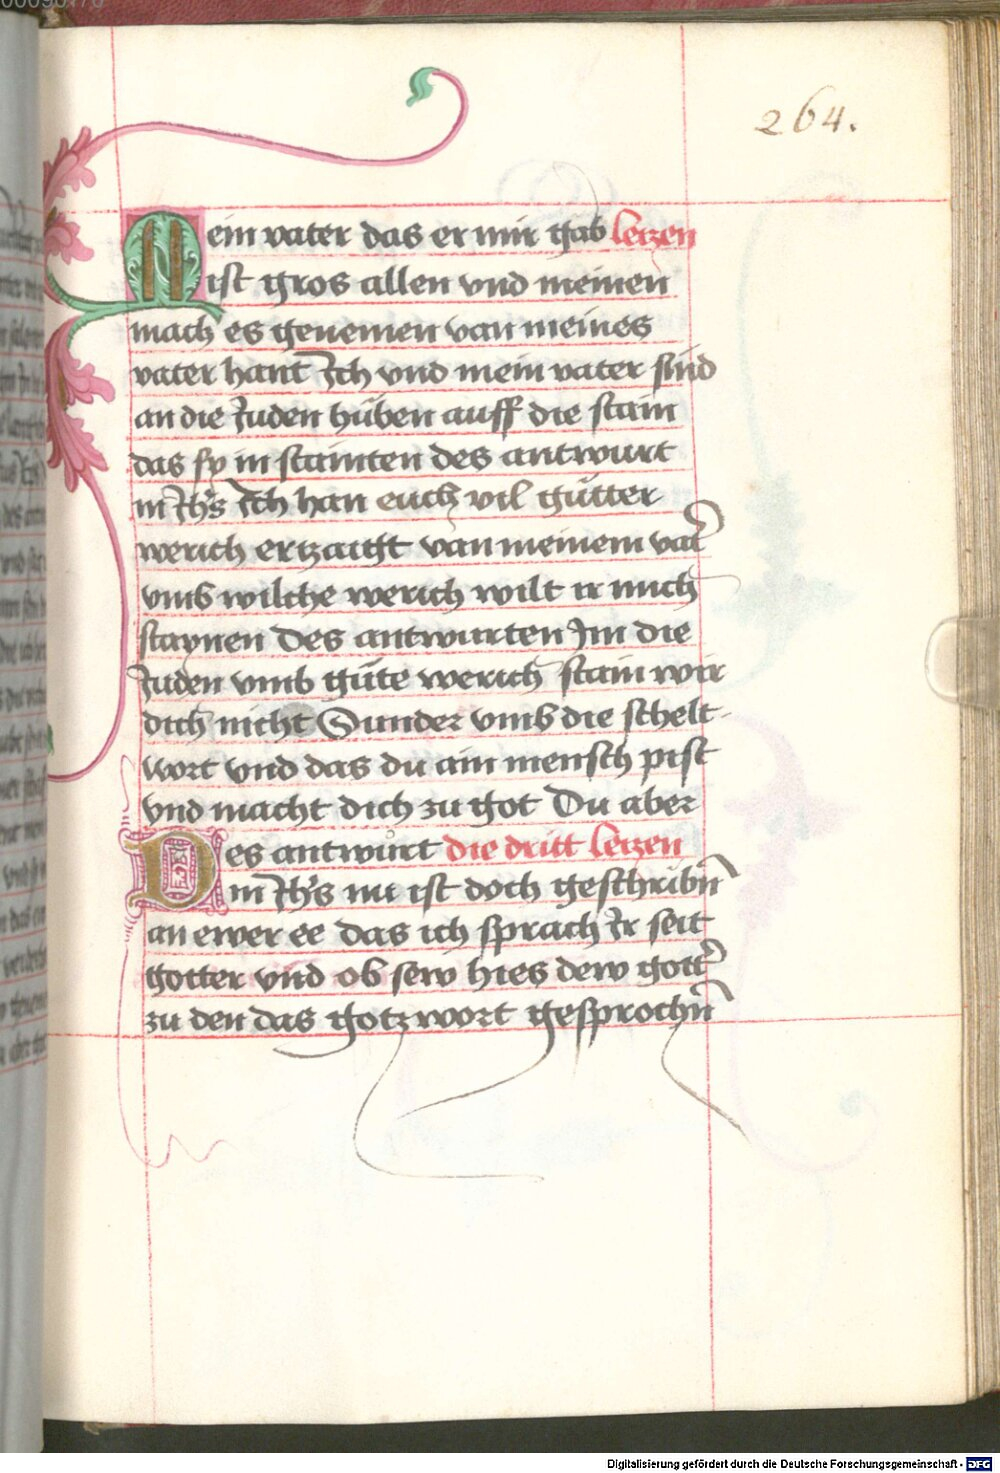 264.
Mein vater das er mir gab letzen
ist gros allen vnd meinen
mach es genemen van meines
vater hant Ich vnd mein vater sind
an die Juden hüben auff die stain
das sy in stainten des antwurt
in Ihs Ich han euch vil gütter
werich ertzaigt van meinem vat̄
vmb wilche werich wilt ir mich
staynen Des antwurten Im die
Juden vmb güte werich stain wir
dich nicht Sunder vmb die schelt
wort vnd das du ain mensch pist
vnd macht dich zu got Du aber
Des antwůrt die dritt letzen
in Ihs nu ist doch geschribn̄
an ewer ee das ich sprach Ir seit
gotter vnd ob sew hies dew gott̄
zu den das gotz wort gesprochn̄
Digitalisierung gefördert durch die Deutsche Forschungsgemeinschaft - DFG